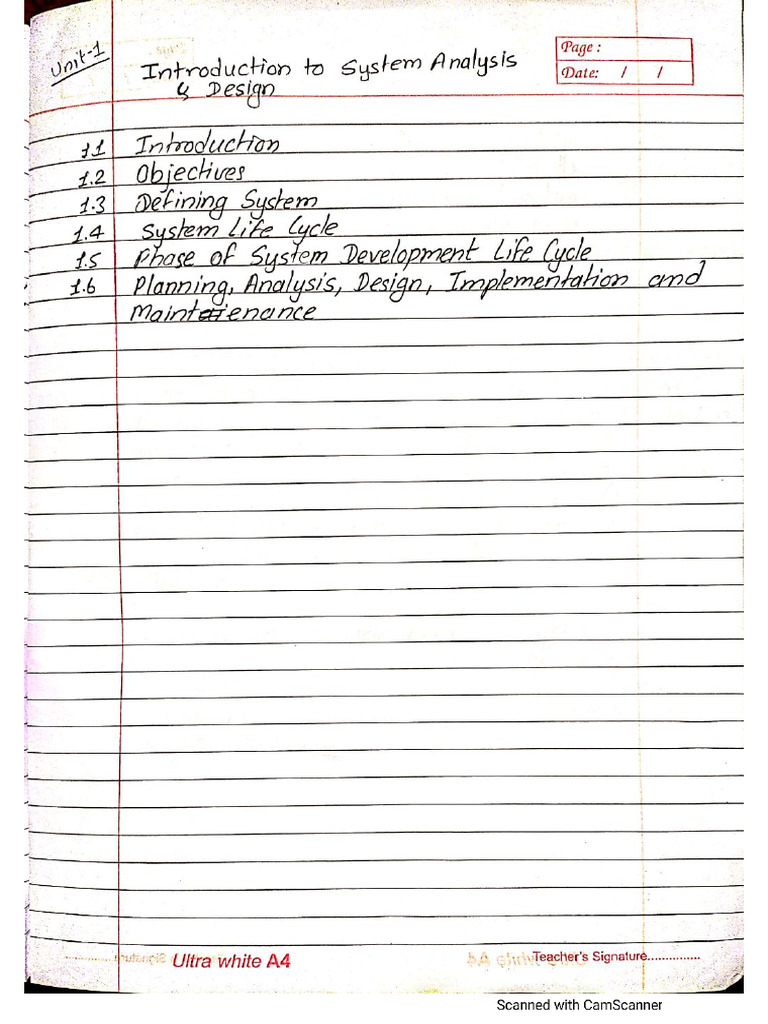 Unit-1
Page :
Introduction to System Analysis
& Design
Date: / /
1.1 Introduction
1.2 Objectives
1.3 Defining System
1.4 System Life Cycle
1.5 Phase of System Development Life Cycle
1.6 Planning, Analysis, Design, Implementation and
Maintenance
Ultra white A4
Teacher's Signature...............
Scanned with CamScanner